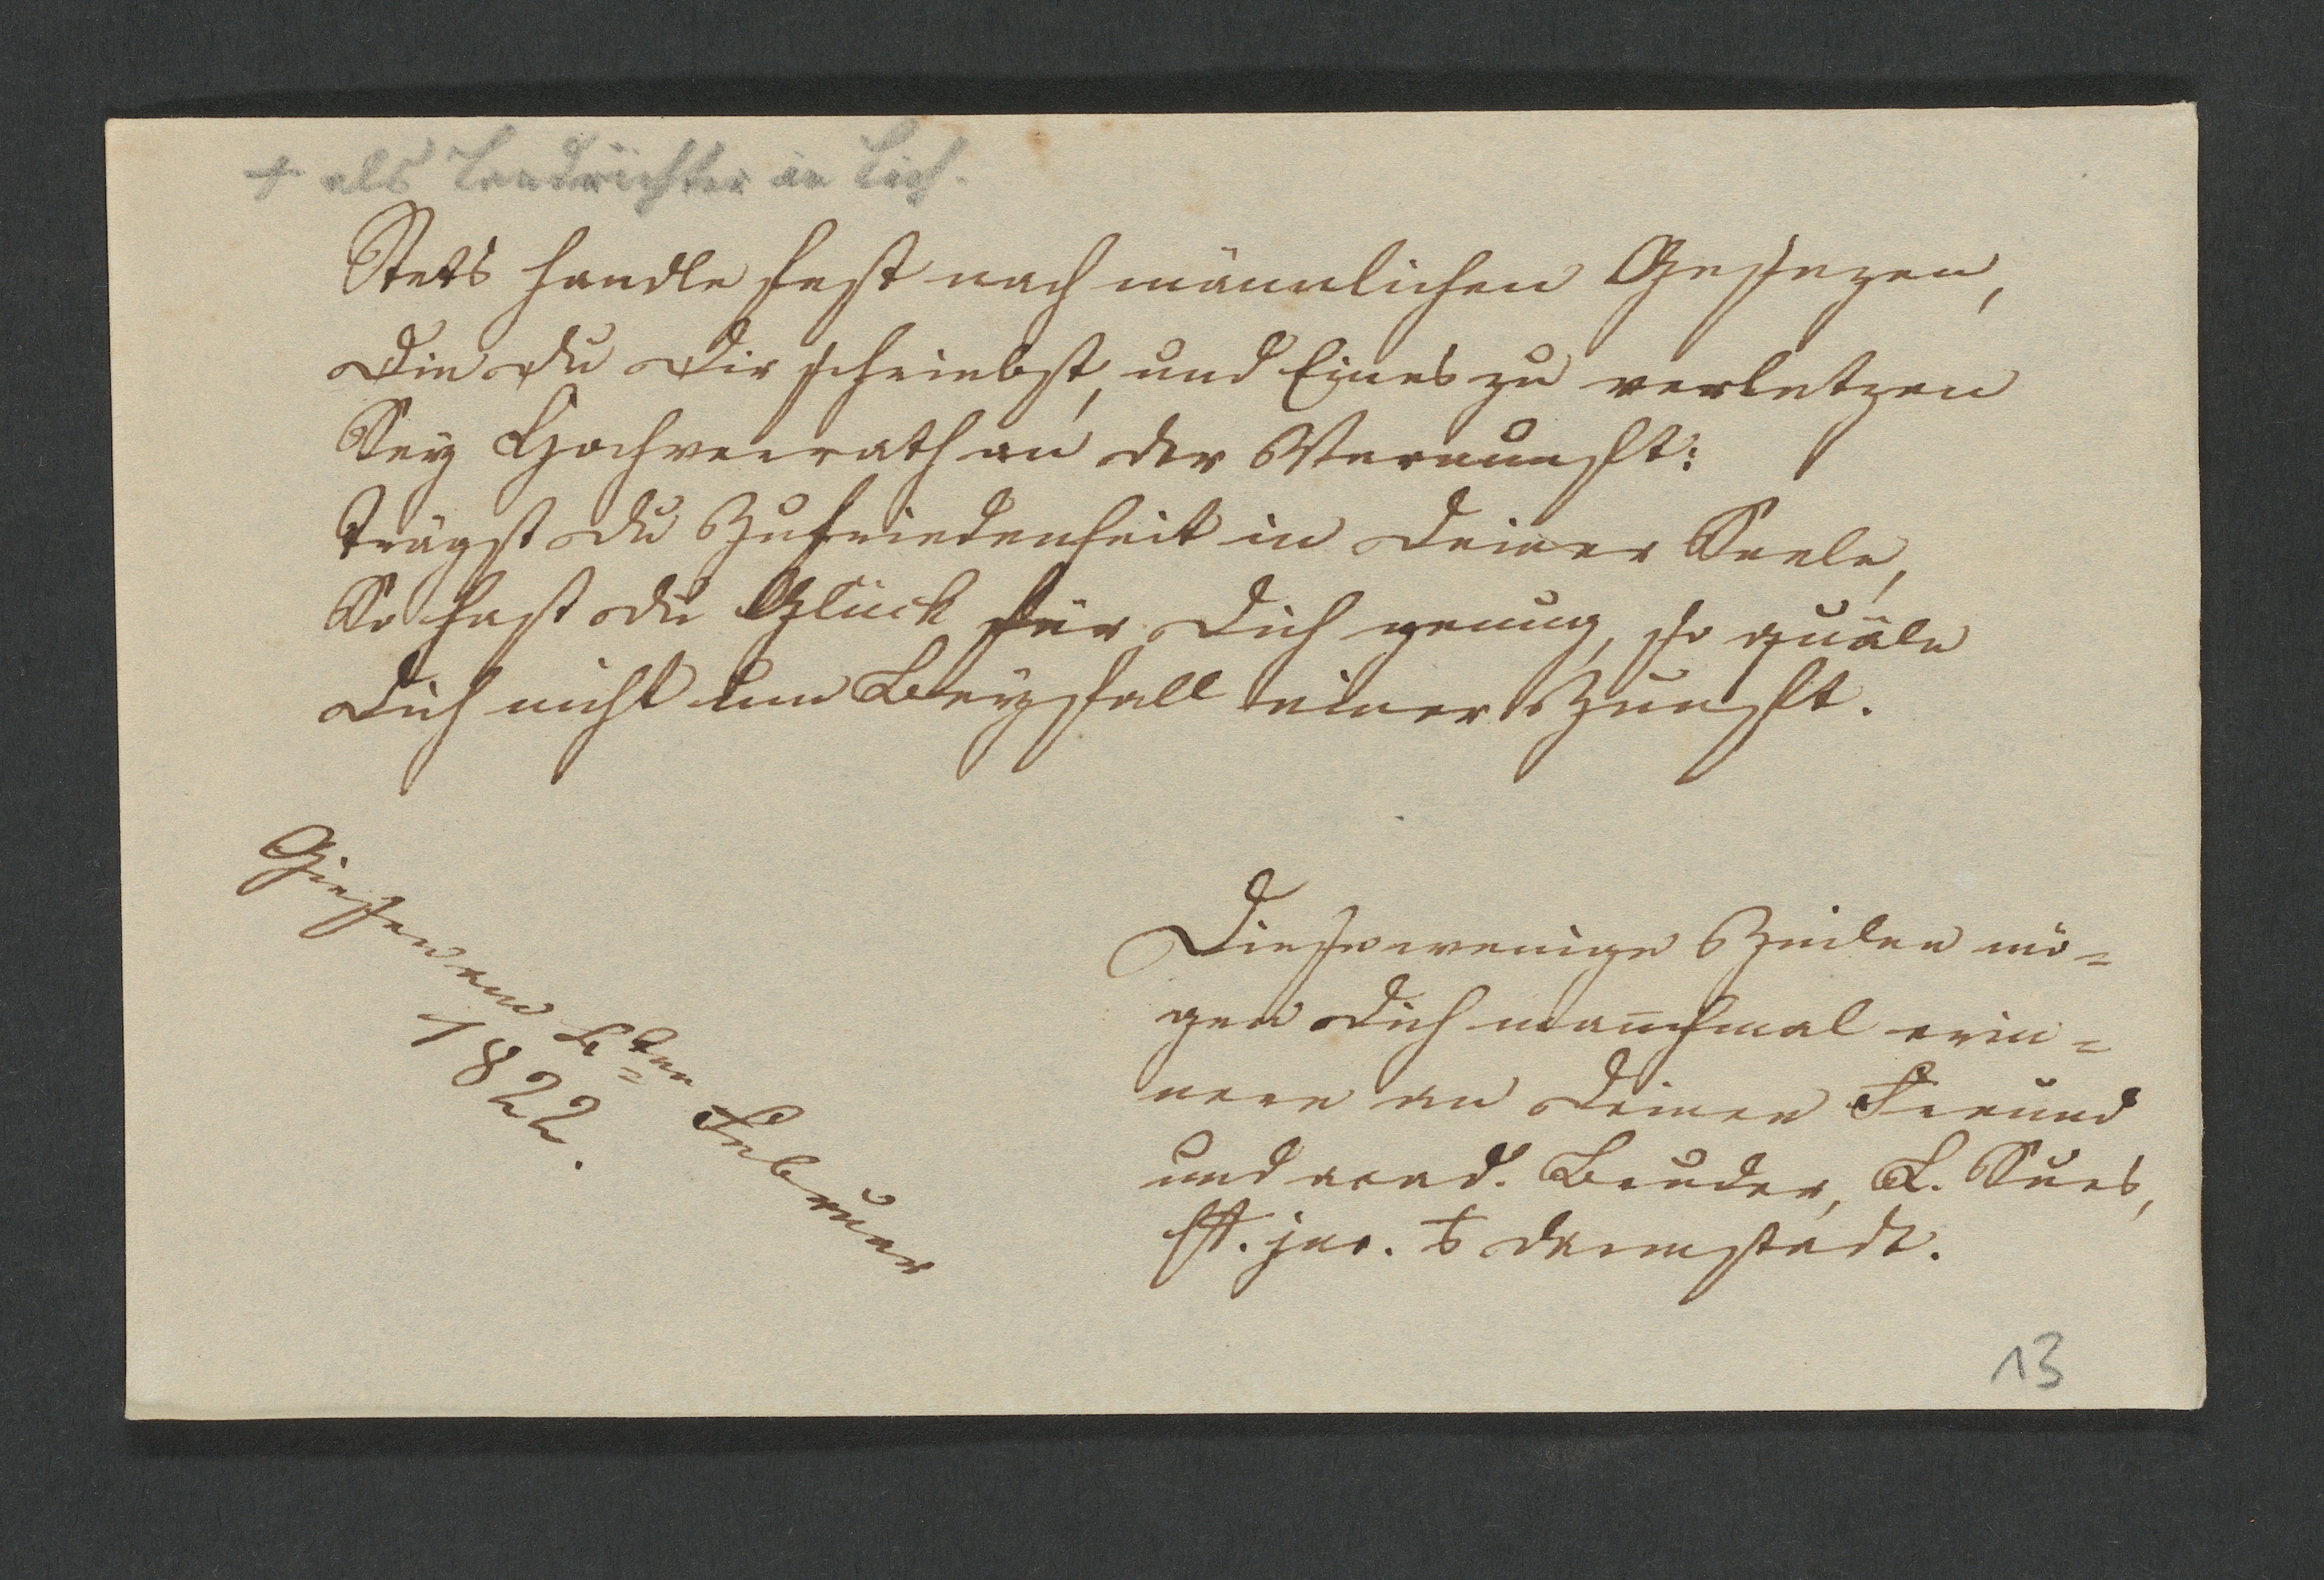 + als Landrichter in Lich.
Stets handle fest nach männlichen Gesezen,
Die du Dir schriebst, und Eines zu verletzen
Sey Hochverrath an der Vernunft:
Trägst du Zufriedenheit in Deiner Seele,
So hast du Glück für Dich genug, so quäle
Dich nicht um Beyfall einer Zunft.
Giesen am ten Februar
1822.
Diese wenige Zeilen mö-
gen Dich manchmal erin-
nern an Deinen Freund
und acad. Bruder, L.
st. jur. Darmstadt.
13